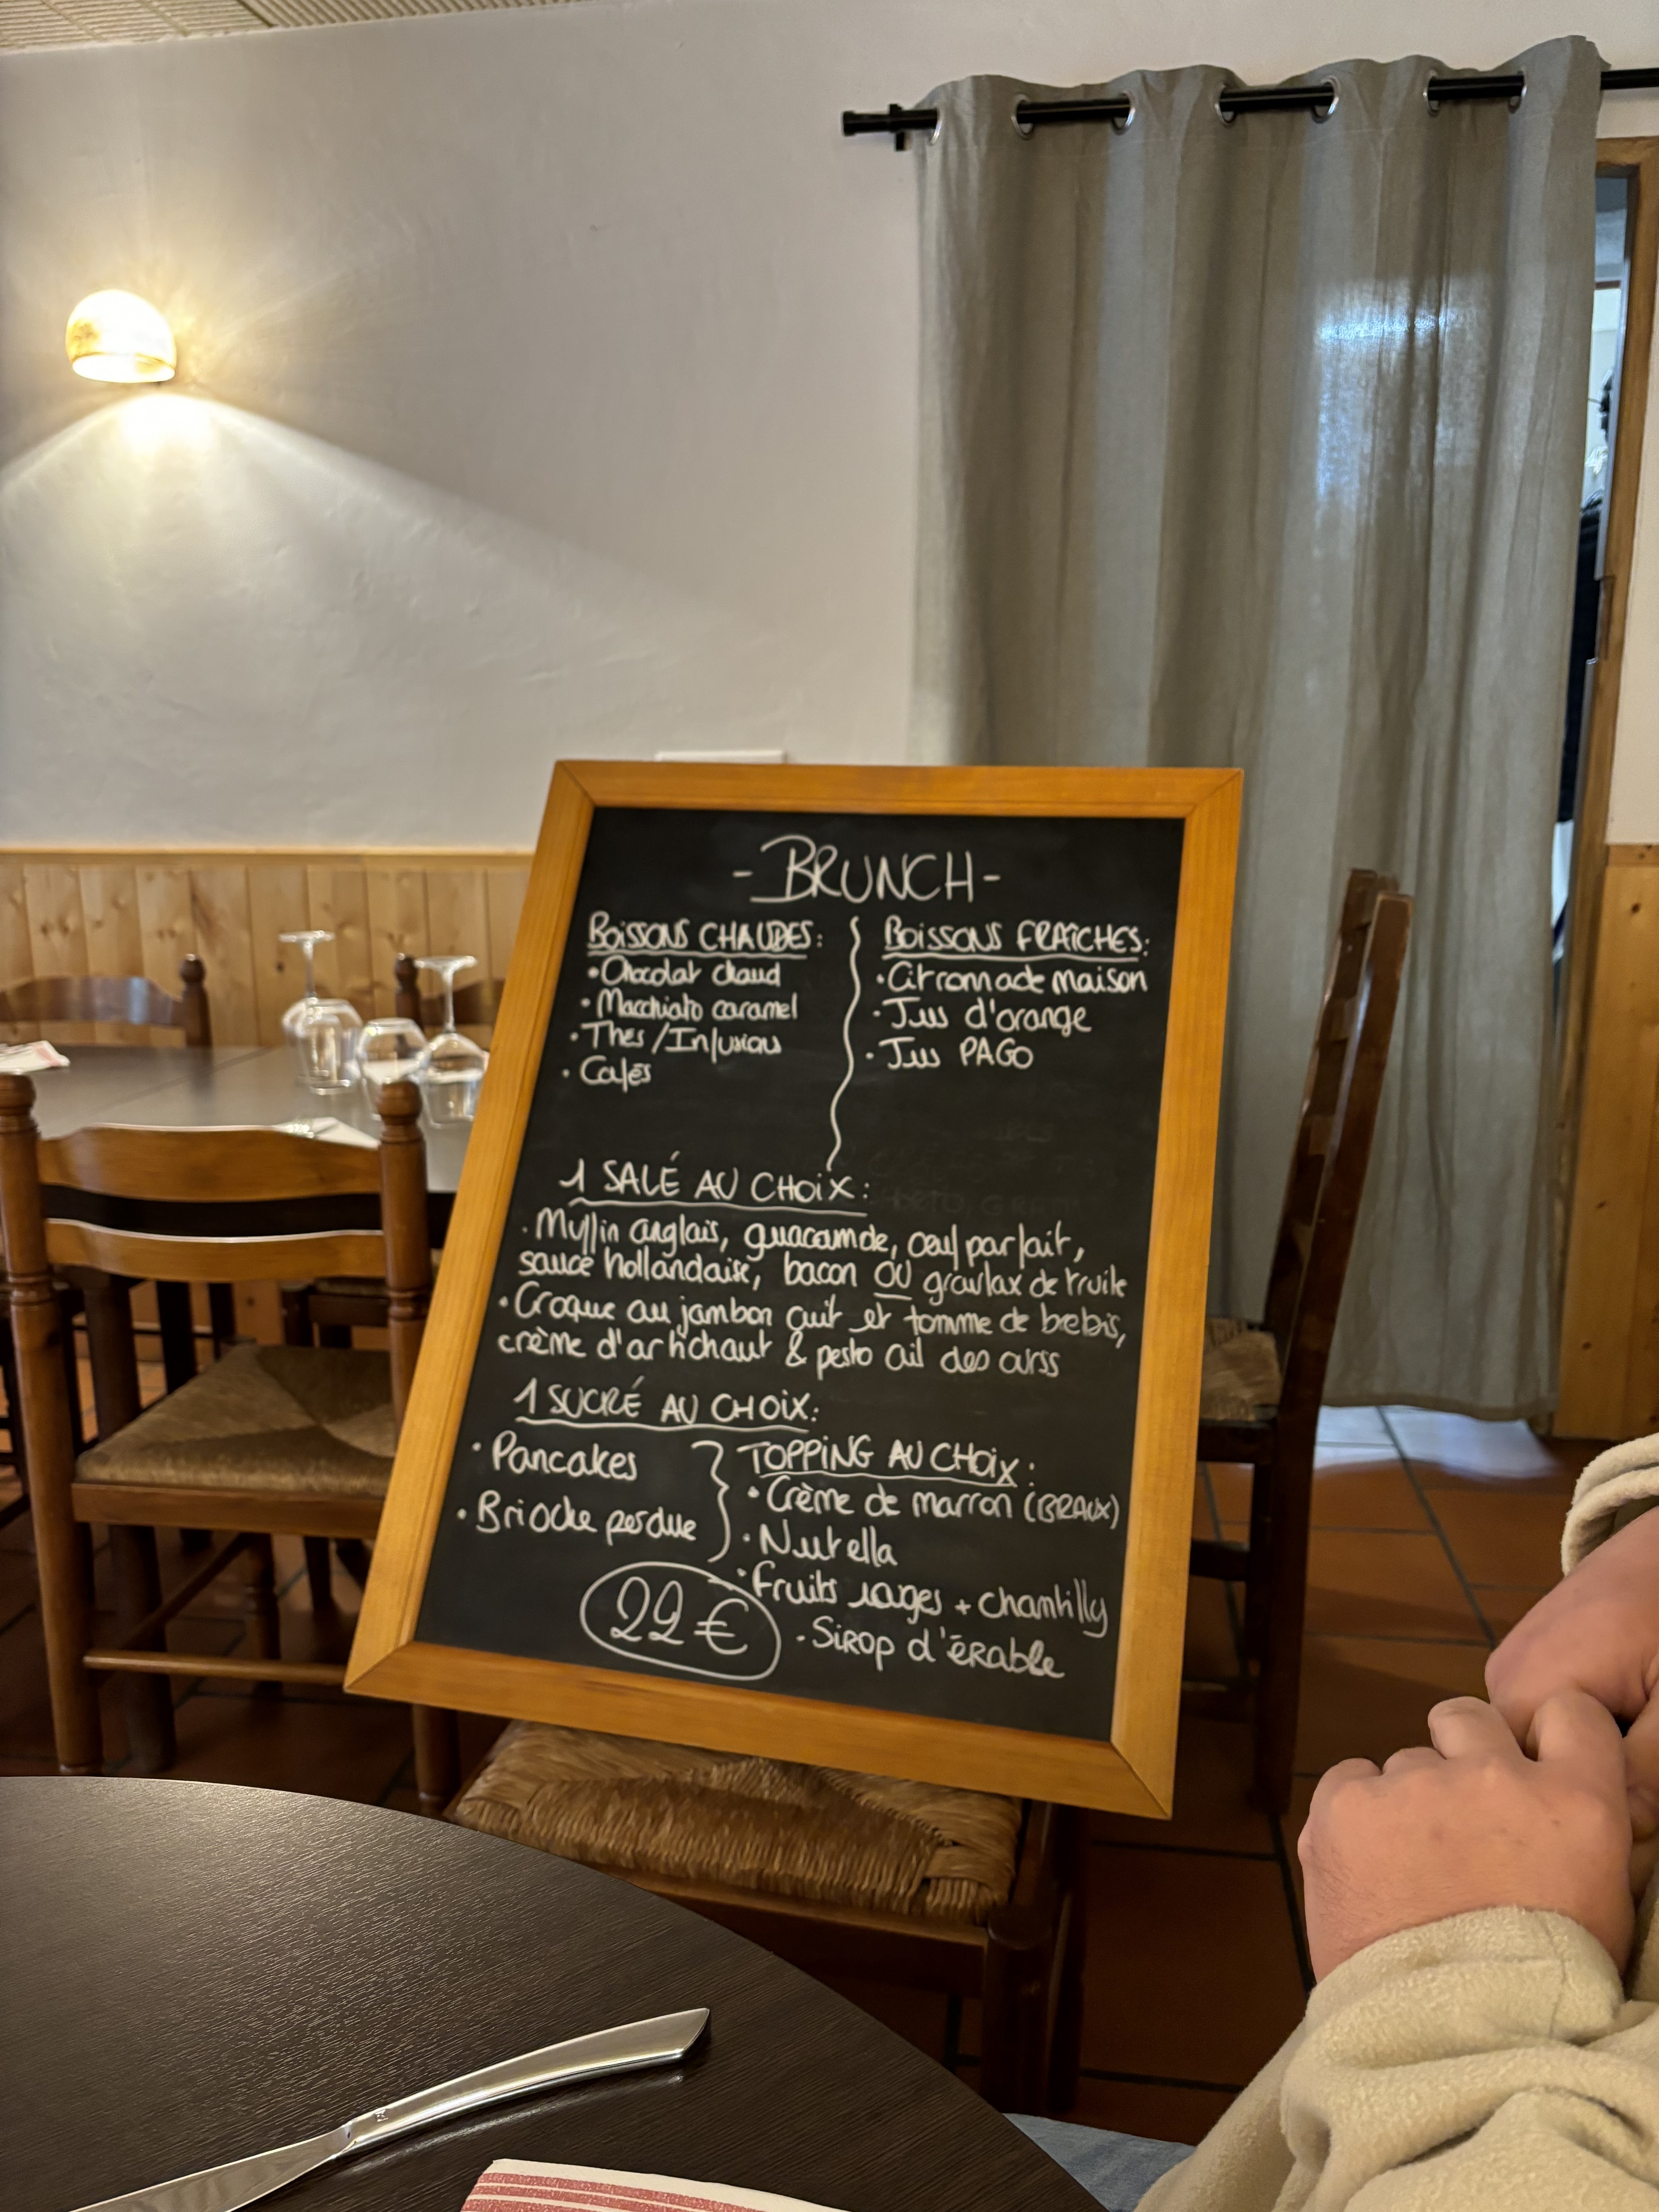 - BRUNCH -
BOISSONS CHAUDES:
• Chocolat chaud
• Macchiato caramel
• Thés / Infusions
• Cafés
BOISSONS FRAÎCHES:
• Citronnade maison
• Jus d'orange
• Jus PAGO
1 SALÉ AU CHOIX:
• Muffin anglais, guacamole, oeuf parfait,
sauce hollandaise, bacon OU gravlax de truite
• Croque au jambon cuit et tomme de brebis,
crème d'artichaut & pesto ail des ours
1 SUCRÉ AU CHOIX:
• Pancakes
• Brioche perdue
TOPPING AU CHOIX:
• Crème de marron (BRAUX)
• Nutella
• Fruits rouges + chantilly
- SIROP d'éRable
22 €